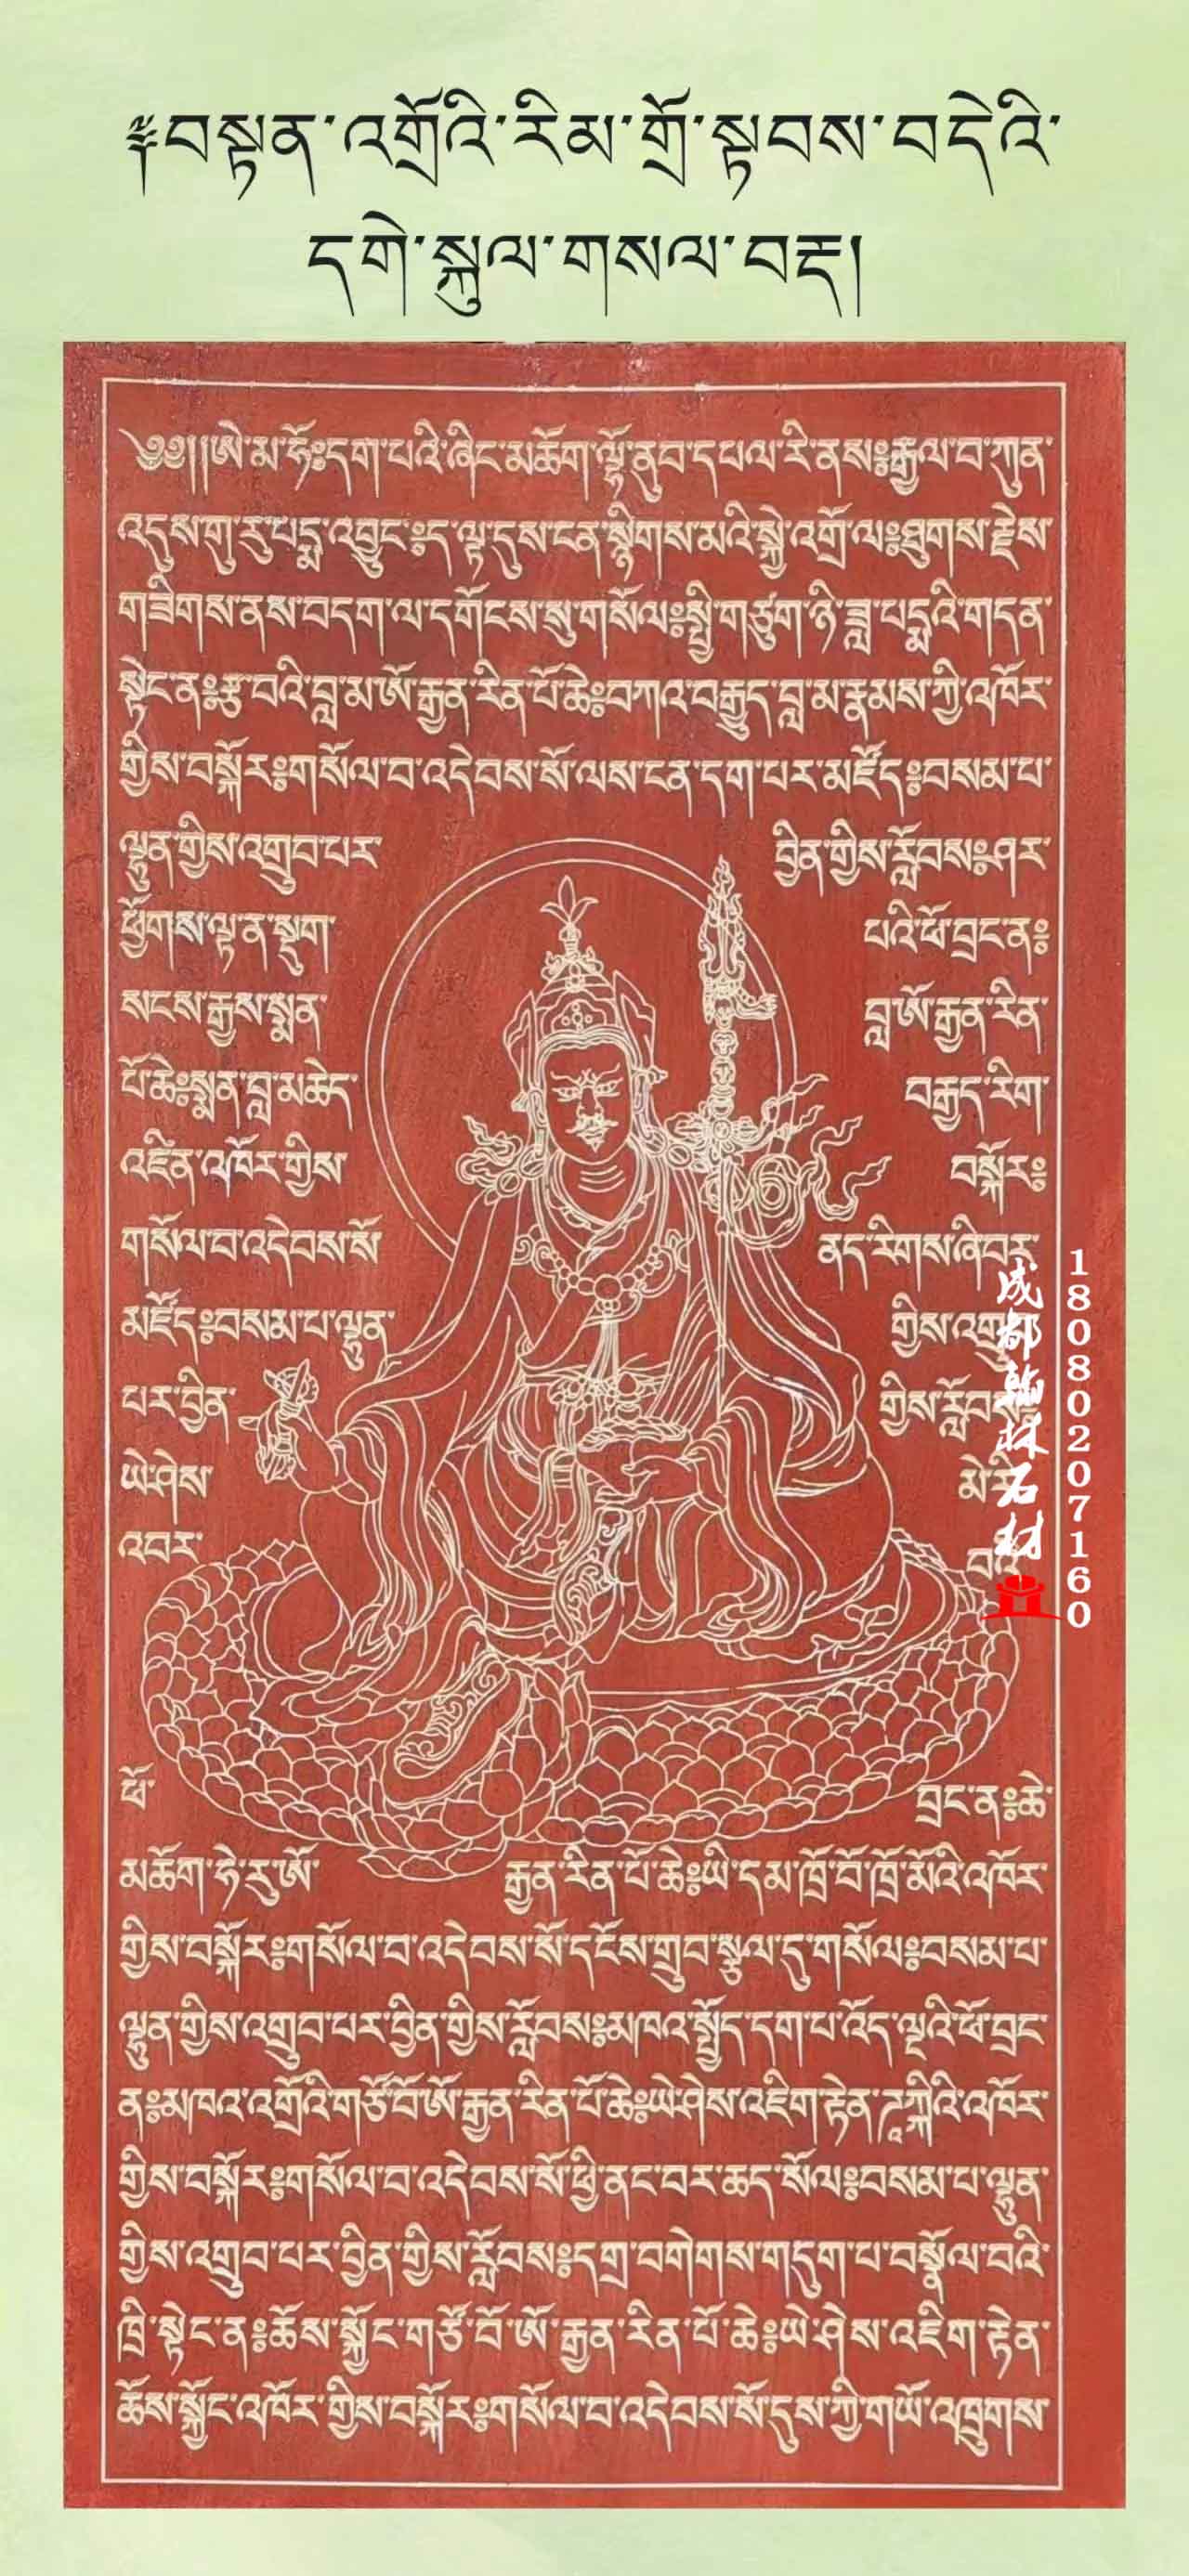 ༈བསྟན་འགྲོའི་རིམ་གྲོ་སྟབས་བདེའི་
དགེ་སྐུལ་གསལ་བརྡ།
༄༅།།ཨེ་མ་ཧོ༔དག་པའི་ཞིང་མཆོག་ལྷོ་ནུབ་དཔལ་རི་ནས༔རྒྱལ་བ་ཀུན་
འདུས་གུ་རུ་པདྨ་འབྱུང༔ད་ལྟ་དུས་ངན་སྙིགས་མའི་སྐྱེ་འགྲོ་ལ༔ཐུགས་རྗེས་
གཟིགས་ནས་བདག་ལ་དགོངས་སུ་གསོལ༔སྤྱི་གཙུག་ཉི་ཟླ་པདྨའི་གདན་
སྟེང་ན༔རྩ་བའི་བླ་མ་ཨོ་རྒྱན་རིན་པོ་ཆེ༔བཀའ་བརྒྱུད་བླ་མ་རྣམས་ཀྱི་འཁོར་
གྱིས་བསྐོར༔གསོལ་བ་འདེབས་སོ་ལས་ངན་དག་པར་མཛོད༔བསམ་པ་
ལྷུན་གྱིས་འགྲུབ་པར་ བྱིན་གྱིས་རློབས༔ཤར་
ཕྱོགས་ལྟ་ན་སྡུག་ པའི་ཕོ་བྲང་ན༔
སངས་རྒྱས་སྨན་ བླ་ཨོ་རྒྱན་རིན་
པོ་ཆེ༔སྨན་བླ་མཆེད་ བརྒྱད་རིག་
འཛིན་འཁོར་གྱིས་ བསྐོར༔
གསོལ་བ་འདེབས་སོ་ ནད་རིགས་ཞི་བར་
མཛོད༔བསམ་པ་ལྷུན་ གྱིས་འགྲུབ་
པར་བྱིན་ གྱིས་རློབས༔
ཡེ་ཤེས་ མེ་རི་
འབར་
ཕོ་ བྲང་ན༔ཆེ་
མཆོག་ཧེ་རུ་ཨོ་ རྒྱན་རིན་པོ་ཆེ༔ཡི་དམ་ཁྲོ་བོ་ཁྲོ་མོའི་འཁོར་
གྱིས་བསྐོར༔གསོལ་བ་འདེབས་སོ་དངོས་གྲུབ་སྩལ་དུ་གསོལ༔བསམ་པ་
ལྷུན་གྱིས་འགྲུབ་པར་བྱིན་གྱིས་རློབས༔མཁའ་སྤྱོད་དག་པ་འོད་ལྔའི་ཕོ་བྲང་
ན༔མཁའ་འགྲོའི་གཙོ་བོ་ཨོ་རྒྱན་རིན་པོ་ཆེ༔ཡེ་ཤེས་འཇིག་རྟེན་ཌཱཀྐིའི་འཁོར་
གྱིས་བསྐོར༔གསོལ་བ་འདེབས་སོ་ཕྱི་ནང་བར་ཆད་སོལ༔བསམ་པ་ལྷུན་
གྱིས་འགྲུབ་པར་བྱིན་གྱིས་རློབས༔དགྲ་བགེགས་གདུག་པ་བསྣོལ་བའི་
ཁྲི་སྟེང་ན༔ཆོས་སྐྱོང་གཙོ་བོ་ཨོ་རྒྱན་རིན་པོ་ཆེ༔ཡེ་ཤེས་འཇིག་རྟེན་
ཆོས་སྐྱོང་འཁོར་གྱིས་བསྐོར༔གསོལ་བ་འདེབས་སོ་དུས་ཀྱི་གཡོ་འཁྲུགས་
成都翰林石材
18080207160